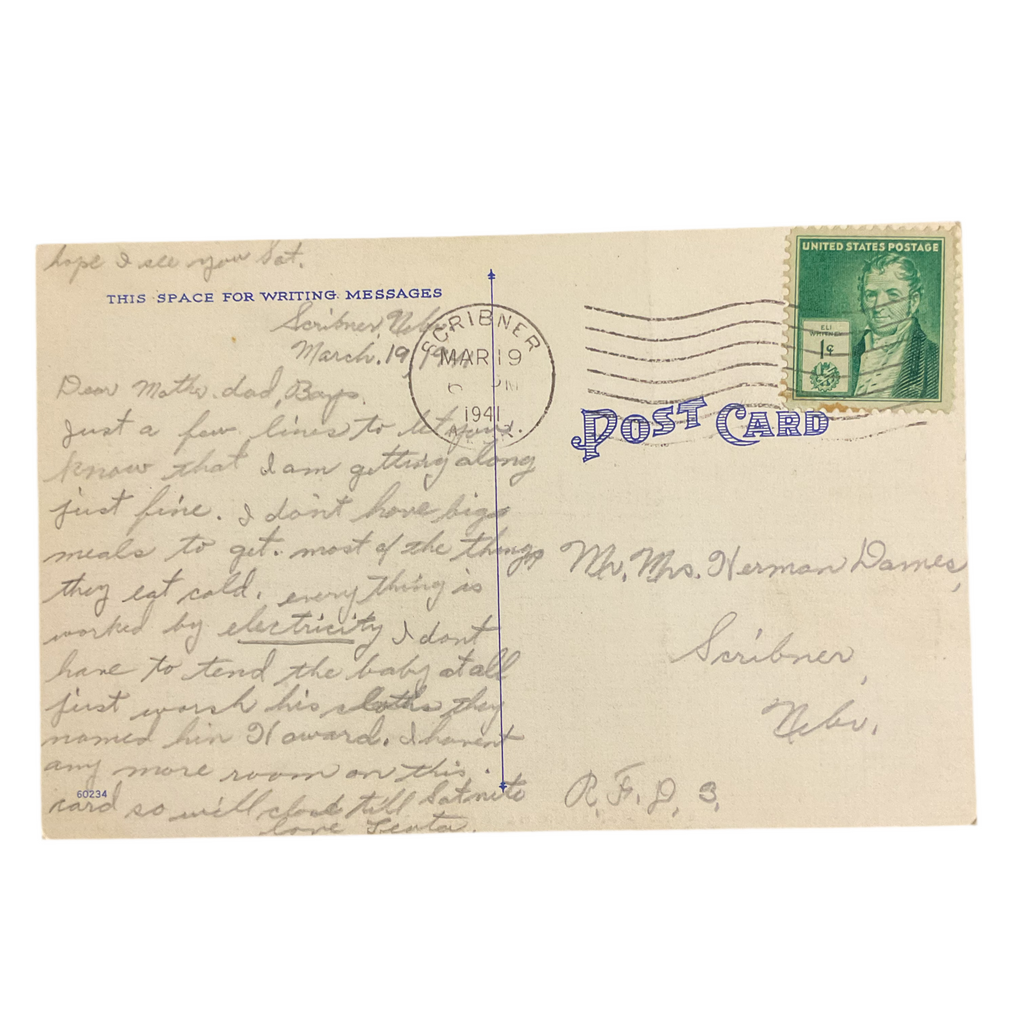 hope I see you Sat.
THIS SPACE FOR WRITING MESSAGES
Scribner, Nebr.
March. 19, 1941
Dear Mother, dad, Boys.
Just a few lines to let you.
know that I am getting along
just fine. I don't have big
meals to get. most of the things
they eat cold. every thing is
worked by electricity I dont
have to tend the baby at all
just worsh his cloths they
named him Howard. I havent
any more room on this.
card so will close till Satnite
love
60234
SCRIBNER
MAR 19
6 PM
1941
NEBR.
UNITED STATES POSTAGE
ELI
WHITNEY
1¢
POST CARD
Mr. Mrs. Herman Dames,
Scribner
Nebr.
R. F. D. 3.